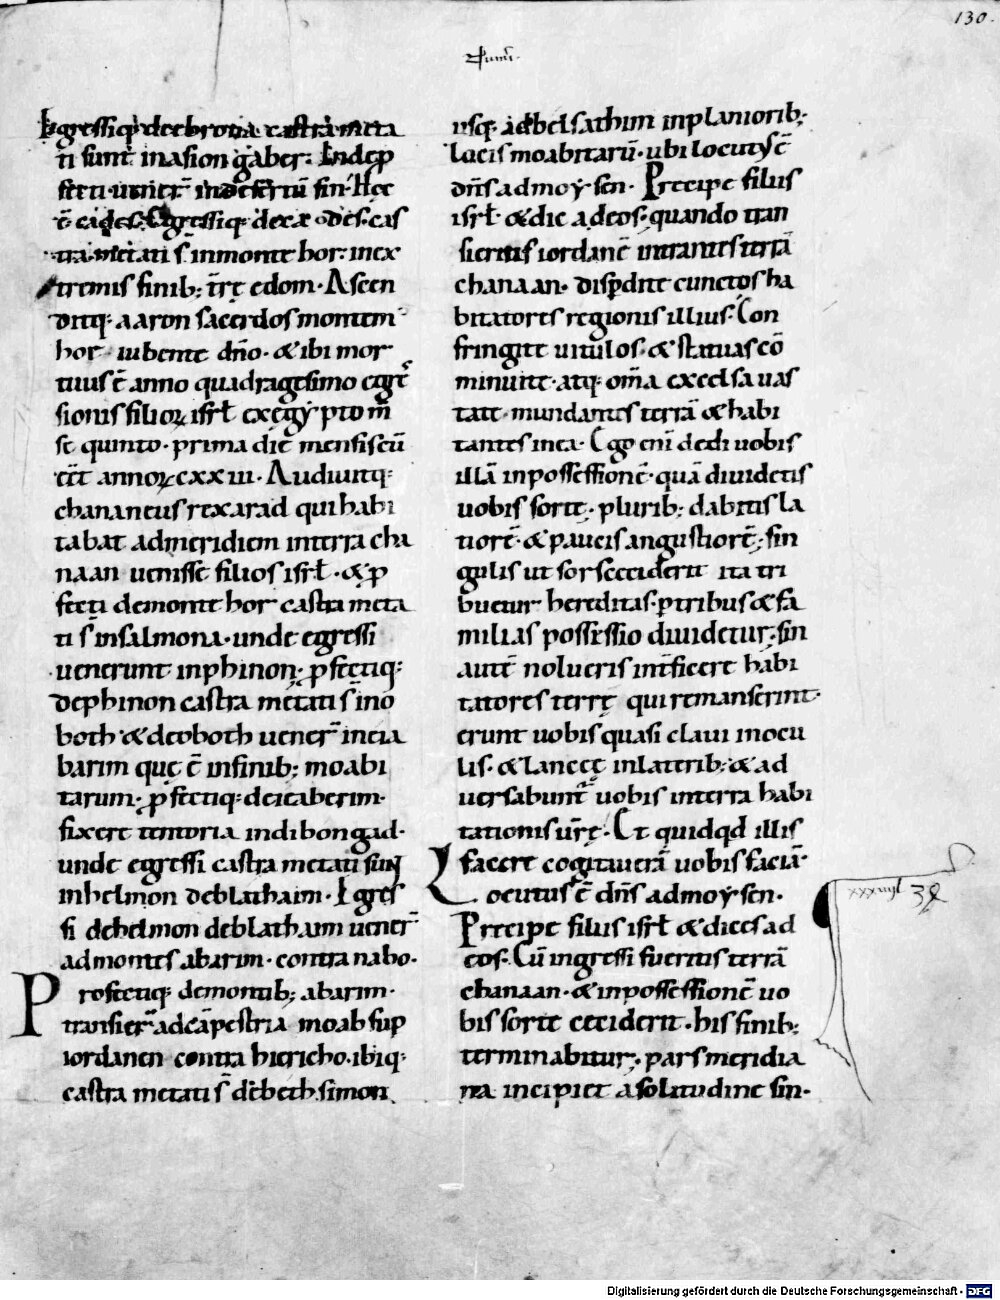 130.
Egressiq; deebrona castra meta
ti sunt inasion gaber: Indep
fecti uener̄ indesertū sin. Hęc
ē cades. Egressiq; decades. cas
tra metati s̄ inmonte hor. inex
tremis finib; t̄rę edom. Ascen
ditq; aaron sacerdos montem
hor iubente dn̄o. & ibi mor
tuus ē anno quadragesimo egre
sionis filioꝝ isrł exęgẏpto m̄
se quinto. prima die mensis cū
eēt annoꝝ cxxiii. Audiuitq;
chananeus rex arad qui habi
tabat admeridiem interra cha
naan uenisse filios isrł. & p
fecti demonte hor castra meta
ti s̄ insalmona. unde egressi
uenerunt inphinon. pfectiq;
dephinon castra metati s̄ ino
both. & deoboth uener̄ inieia
barim que ē infinib; moabi
tarum. pfectiq; deieaberim.
fixere tentoria indibongad.
unde egressi castra metati sunt
inhelmon deblathaim. Egres
si dehelmon deblathaim uener̄
admontes abarim. contra nabo.
Profectiq; demontib; abarim.
transier̄ adcāpestria moab sup
iordanen contra hiericho. ibiq;
castra metati s̄ debeth simon
usq; adbelsathim inplaniorib;
locis moabitarū. ubi locutus ē
dn̄s admoẏsen. Precipe filiis
isrł & dic adeos. quando tran
sieritis iordanē intrantes terrā
chanaan. disperdite cunctos ha
bitatores regionis illius. Con
fringite uitulos. & statuas cō
minuite. atq; om̄a excelsa uas
tate. mundantes terrā & habi
tantes inea. Ego eni dedi uobis
illā inpossessionē. quā diuidetis
uobis sorte. plurib; dabitis la
tiorē. & paucis angustiorē. sin
gulis ut sors ceciderit ita tri
buetur hereditas. ptribus & fa
milias possessio diuidetur. sin
autē nolueris int̄ficere habi
tatores terrę qui remanserint.
erunt uobis quasi claui inocu
lis. & lanceę inlaterib; & ad
uersabunt̄ uobis interra habi
tationis ur̄ę. Et quidqd illis
facere cogitauerā uobis faciā.
Locutus ē dn̄s admoẏsen.
Precipe filiis isrł & dices ad
eos. Cū ingressi fueritis terrā
chanaan. & inpossessionē uo
bis sorte ceciderit. his finib;
terminabitur. pars meridia
na incipiet asolitudine sin.
Digitalisierung gefördert durch die Deutsche Forschungsgemeinschaft - DFG